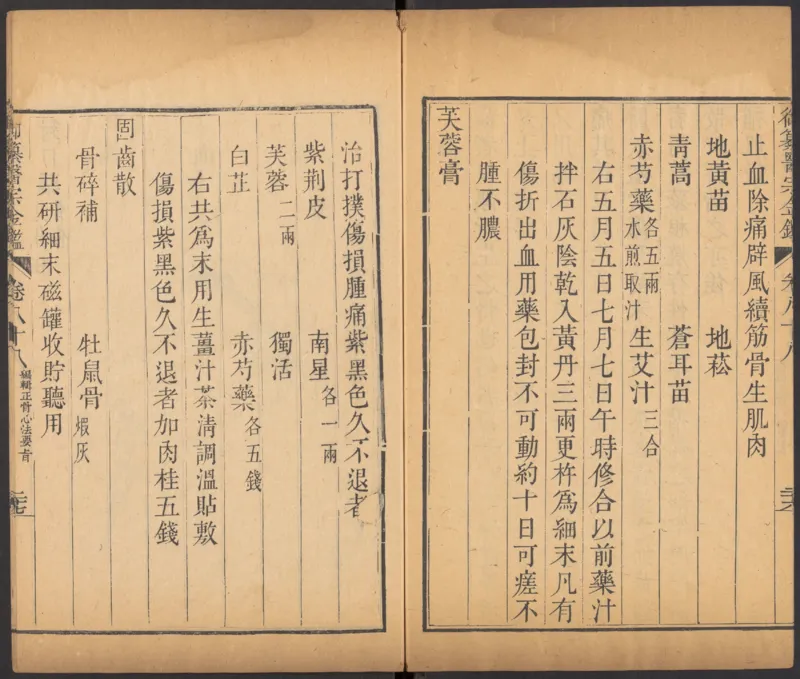 御纂醫宗金鑑
卷八十八
止血除痛辟風續筋骨生肌肉
地黃苗 地菘
青蒿 蒼耳苗
赤芍藥各五兩水煎取汁 生艾汁三合
右五月五日七月七日午時修合以前藥汁
拌石灰陰乾入黃丹三兩更杵為細末凡有
傷折出血用藥包封不可動約十日可瘥不
腫不膿
芙蓉膏
治打撲傷損腫痛紫黑色久不退者
紫荊皮 南星各一兩
芙蓉二兩 獨活
白芷 赤芍藥各五錢
右共為末用生薑汁茶清調溫貼敷
傷損紫黑色久不退者加肉桂五錢
固齒散
骨碎補 牡鼠骨煆灰
共研細末磁罐收貯聽用
御纂醫宗金鑑 卷八十八 編輯正骨心法要旨